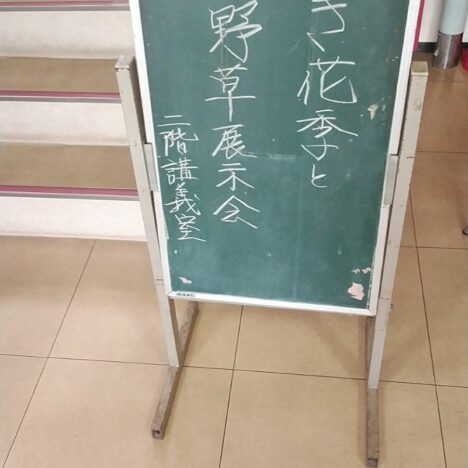 き花季と
野草展示会
二階講義室